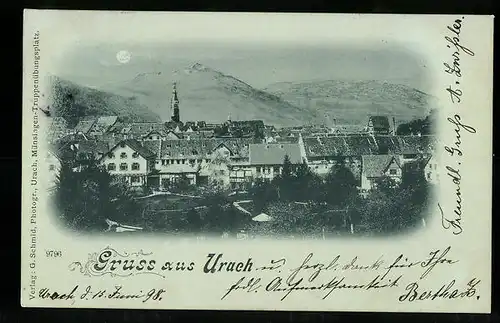 Verlag: G. Schmid, Photogr., Urach, Münsingen-Truppenübungsplatz.
9796
Gruss aus Urach u. herzl. dank für Ihre
frdl. Aufmerksamkeit
Bertha Z.
Urach, d. 15. Juni 98.
Freundl. Gruß A. Zwißler.